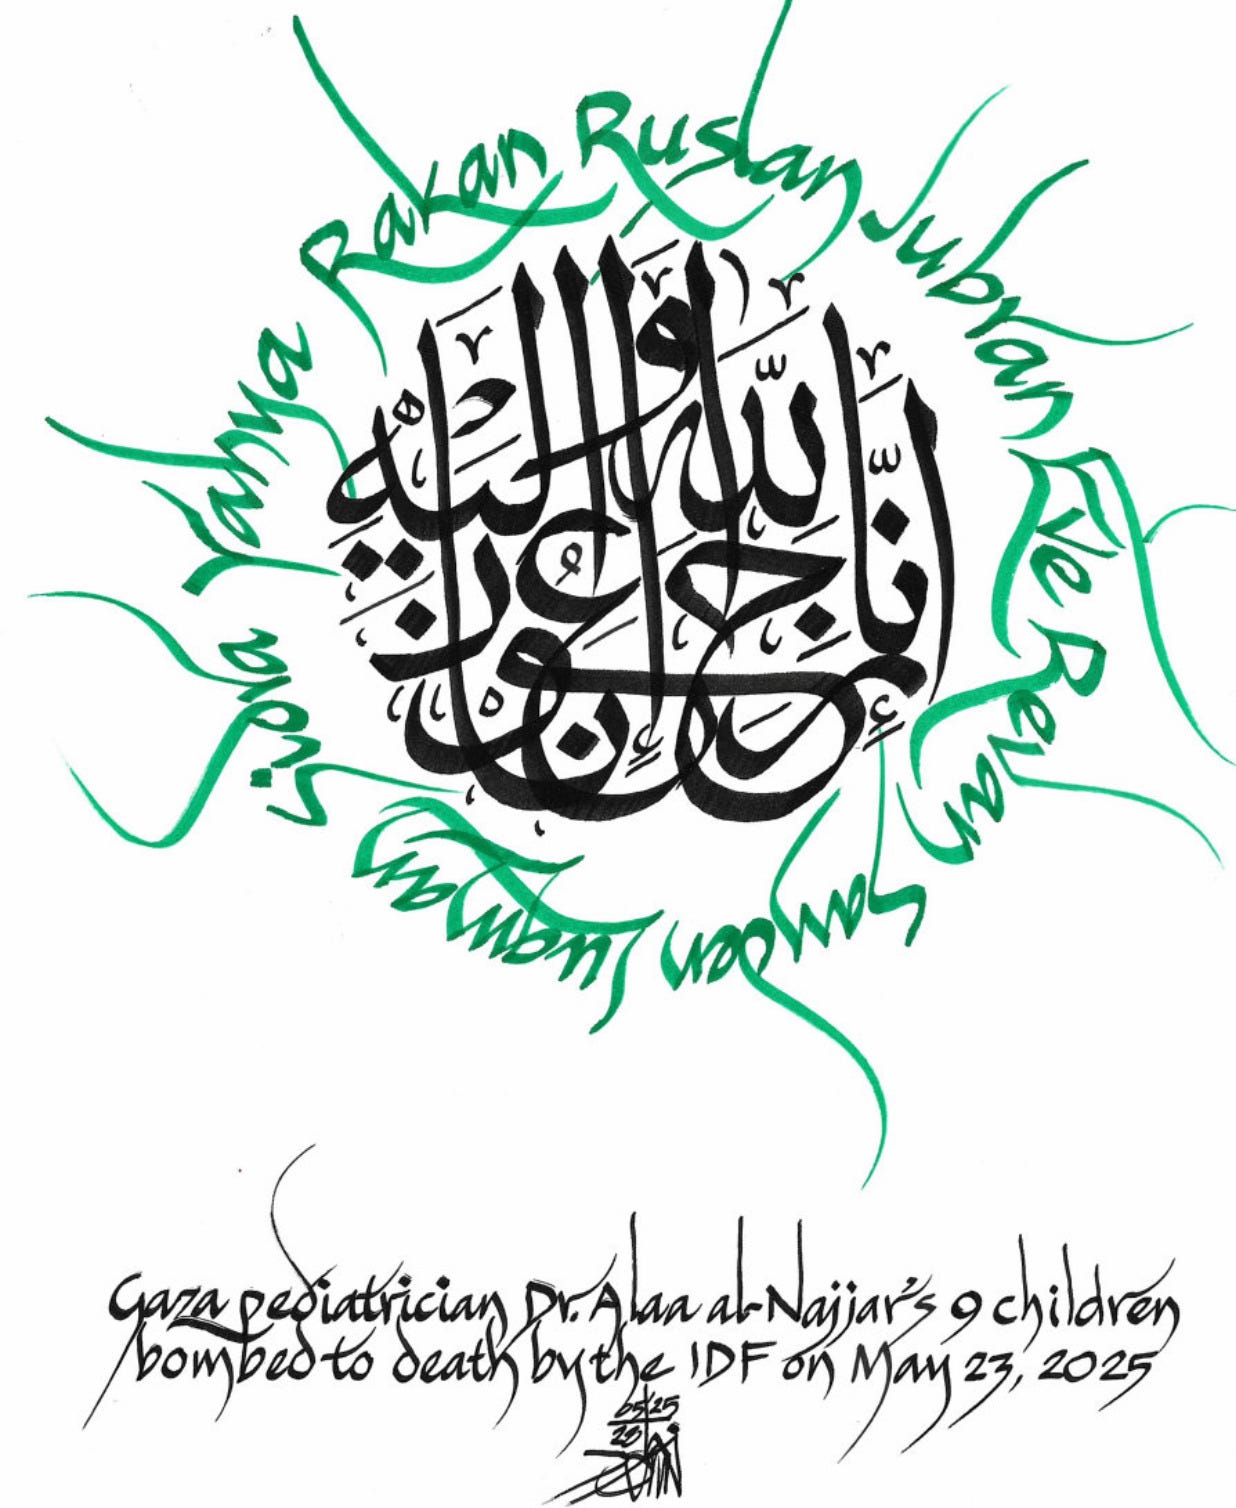 إِنَّا لِلَّهِ وَإِنَّا إِلَيْهِ رَاجِعُونَ
Yahya Rakan Ruslan Jubran Eve Revan Sayden Luqman Sidra
Gaza pediatrician Dr. Alaa al-Najjar's 9 children
bombed to death by the IDF on May 23, 2025
05 25